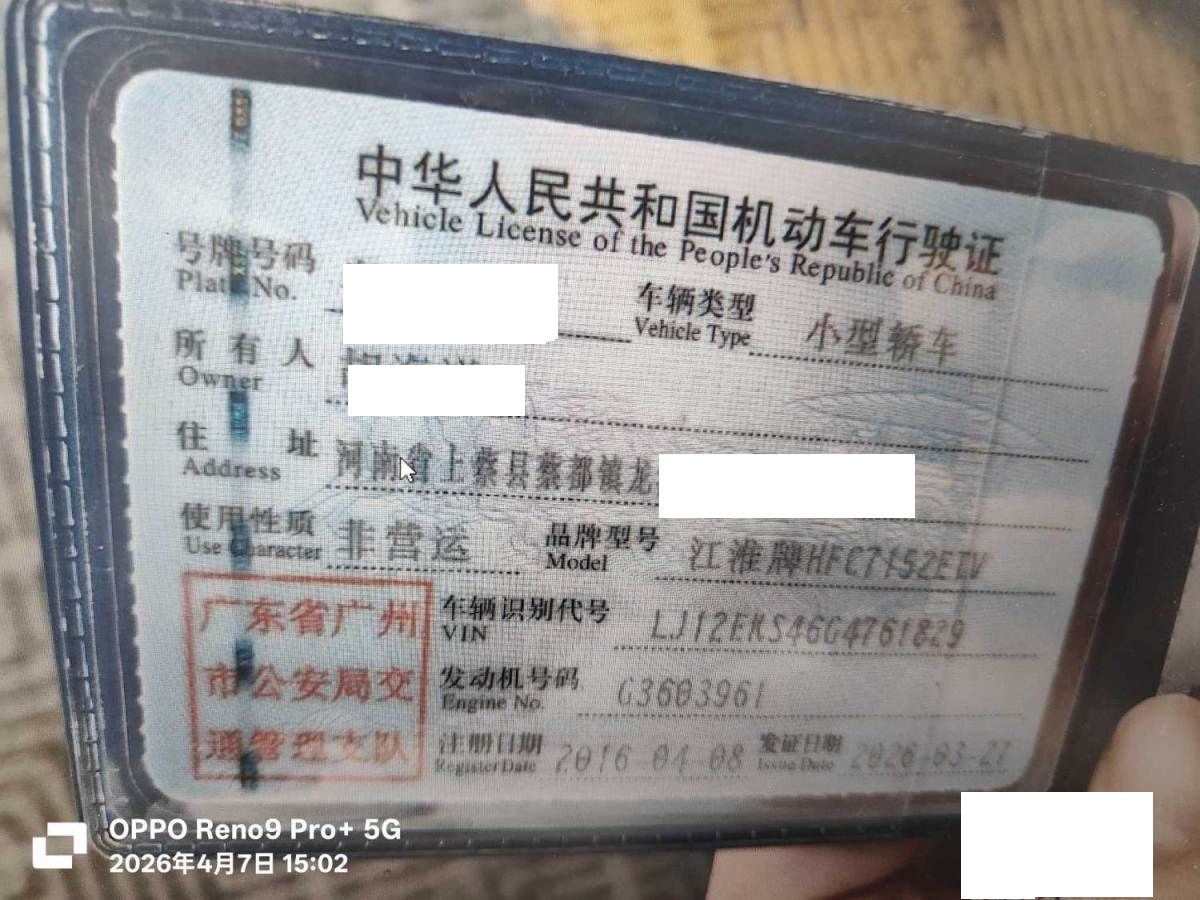 中华人民共和国机动车行驶证
Vehicle License of the People's Republic of China
号牌号码
Plate No.
车辆类型 小型轿车
Vehicle Type
所有人
Owner
住址 河南省上蔡县蔡都镇龙
Address
使用性质 非营运
Use Character
品牌型号 江淮牌HFC7152ETV
Model
广东省广州
市公安局交
通管理支队
车辆识别代号 LJ12EKS46G4761829
VIN
发动机号码 G3603961
Engine No.
注册日期 2016-04-08
Register Date
发证日期 2026-03-27
Issue Date
OPPO Reno9 Pro+ 5G
2026年4月7日 15:02